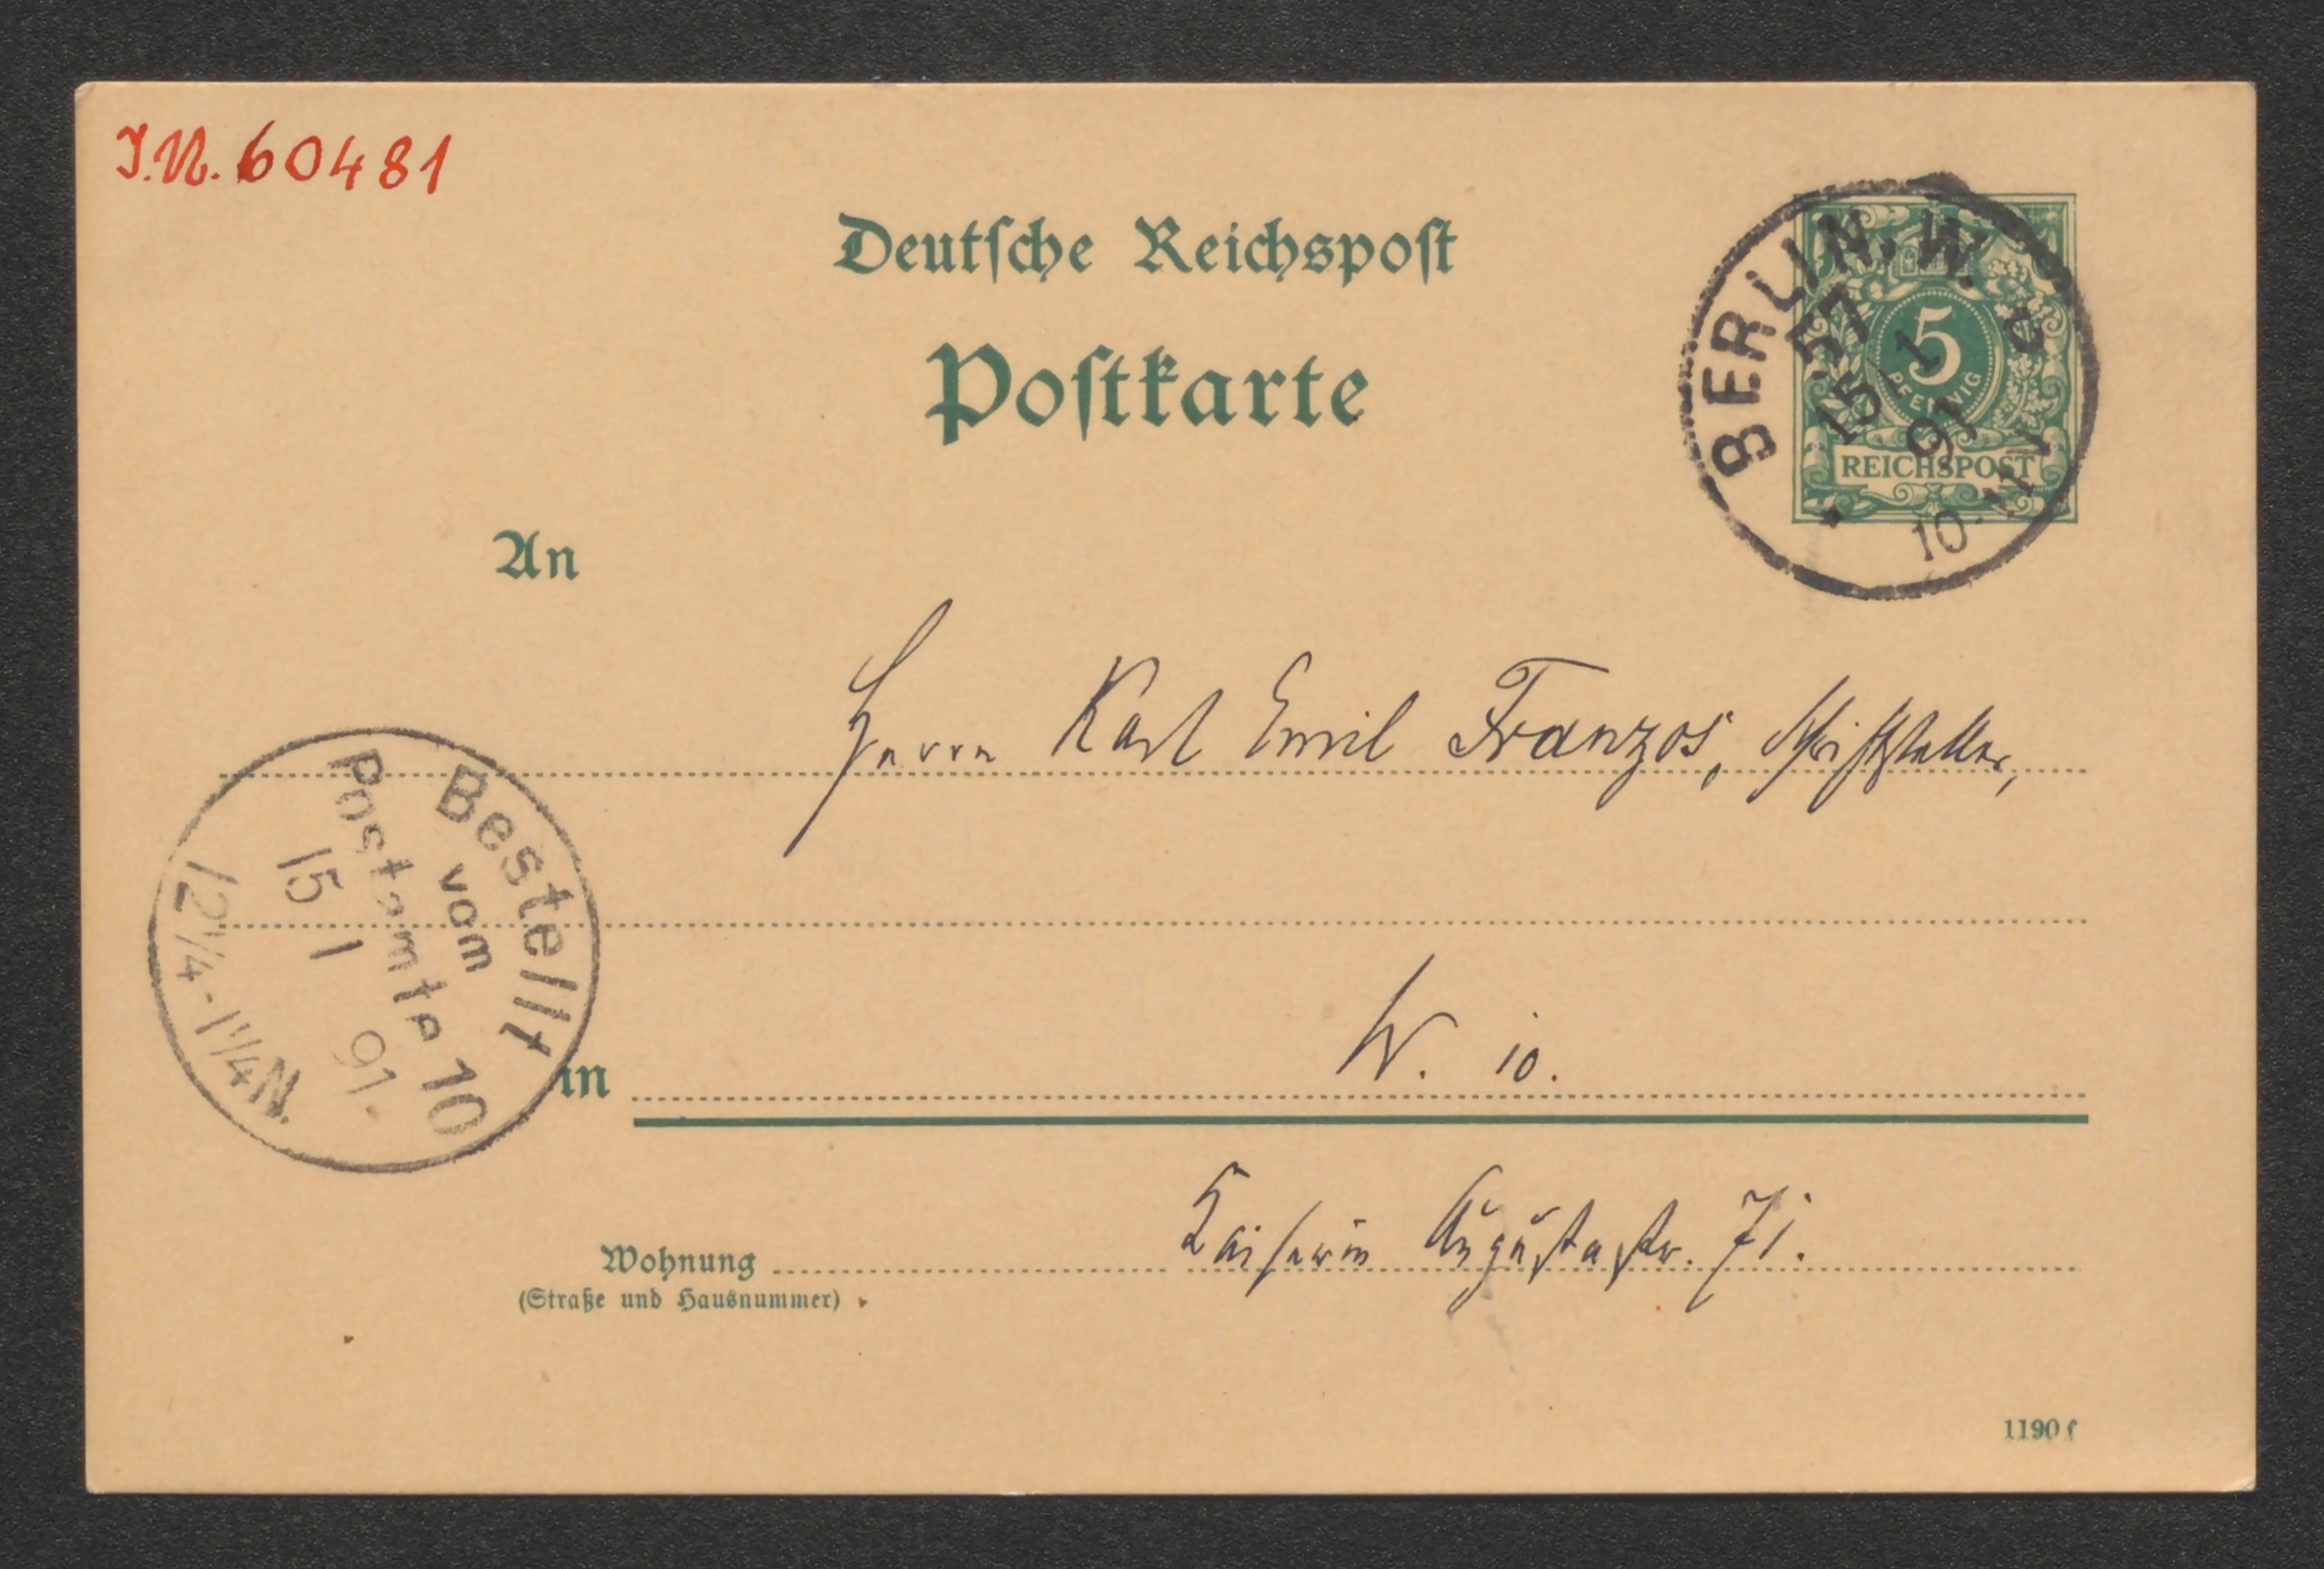 I.N. 60481
Deutsche Reichspost
Postkarte
BERLIN. W.
57
15/1
91
10-11V
c
5
PFENNIG
REICHSPOST
An
Herrn Karl Emil Franzos, Schriftsteller,
Bestellt
vom
Postamte 10
15 1 91.
12¼-1¼N.
in W. 10.
Wohnung Kaiserin Augustastr. 71.
(Straße und Hausnummer)
1190 f